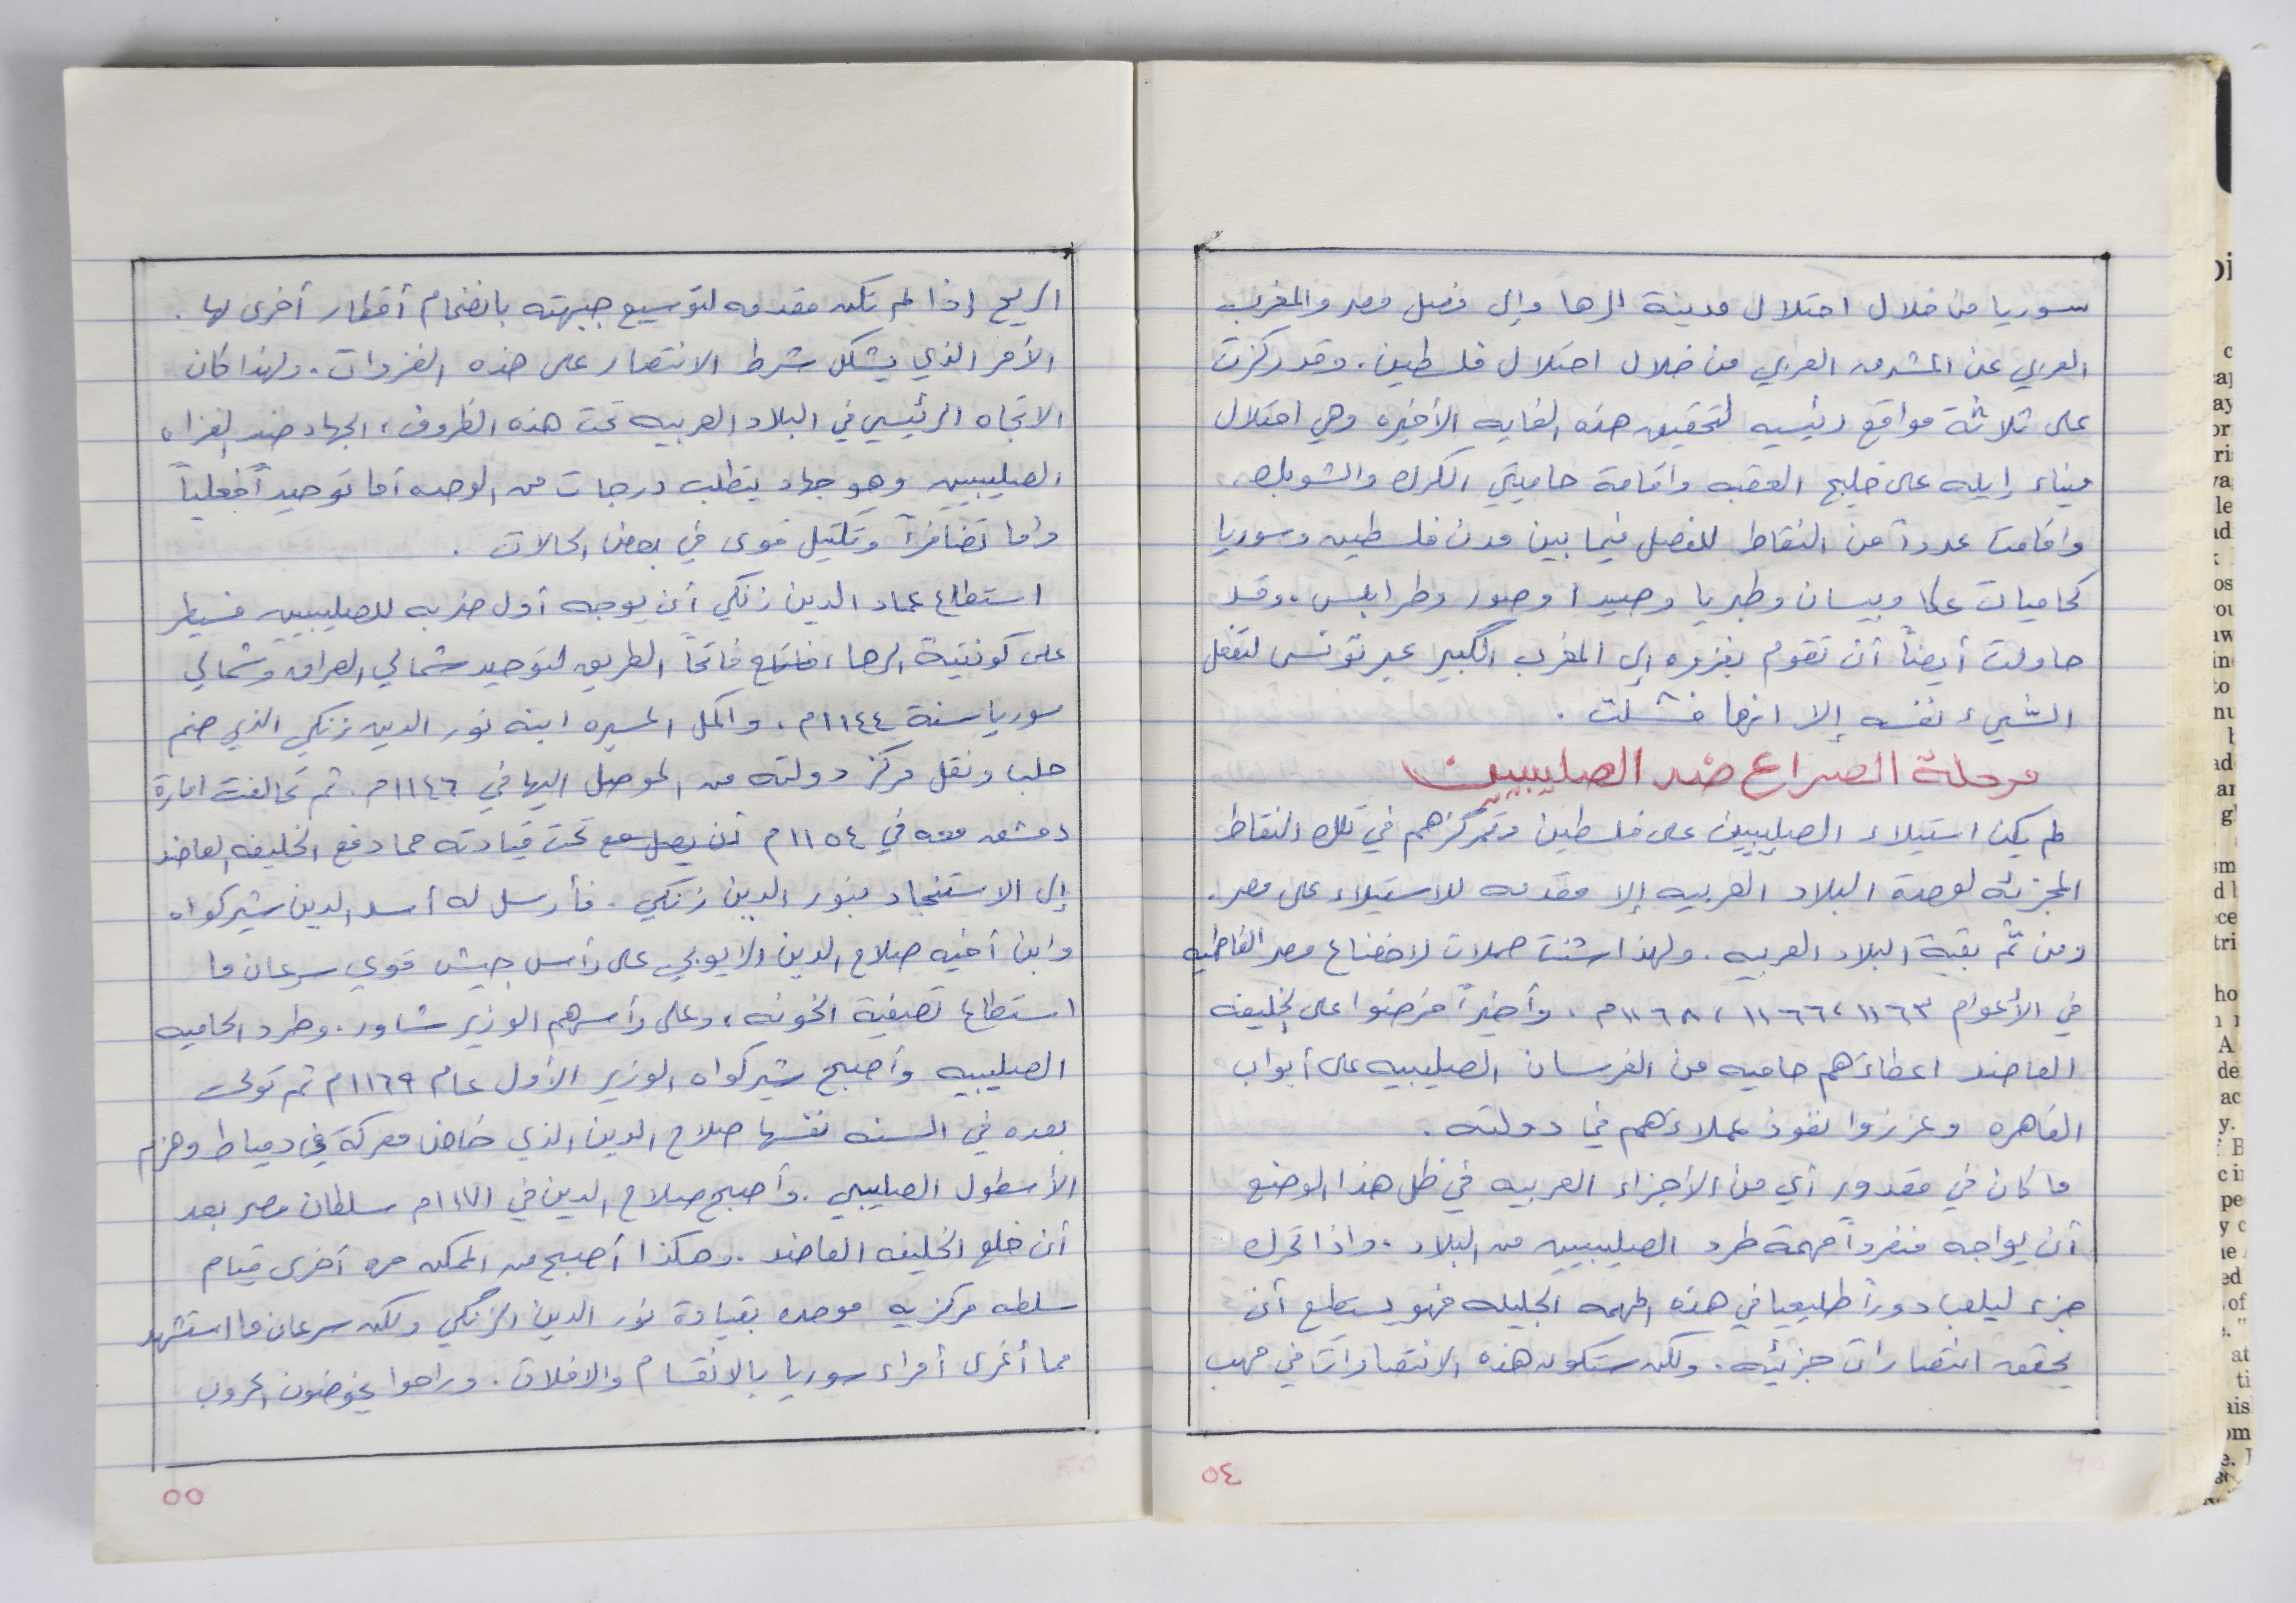 سوريا من خلال احتلال مدينة الرها وإلى فصل مصر والمغرب
العربي عن المشرق العربي من خلال احتلال فلسطين. وقد ركزت
على ثلاثة مواقع رئيسيه لتحقيق هذه الغايه الأخيره وهي احتلال
ميناء إيله على خليج العقبه واقامة حاميتي الكرك والشوبك،
واقامت عدداً من النقاط للفصل فيما بين مدن فلسطين وسوريا
كحاميات عكا وبيسان وطبريا وصيدا وصور وطرابلس. وقد
حاولت أيضاً أن تقوم بغزوه إلى المغرب الكبير عبر تونس لتفعل
الشيء نفسه إلا انها فشلت .
مرحلة الصراع ضد الصليبيين
لم يكن استيلاء الصليبيين على فلسطين وتمركزهم في تلك النقاط
المجزئه لوحدة البلاد العربيه إلا مقدمه للاستيلاء على مصر.
ومن ثم بقية البلاد العربيه. ولهذا شنت حملات لاخضاع مصر الفاطميه
في الأعوام ١١٦٣، ١١٦٦، ١١٦٨م. وأخيراً فرضوا على الخليفه
العاضد اعطاءهم حاميه من الفرسان الصليبيه على أبواب
القاهره وعززوا نفوذ عملاءهم في دولته.
ما كان في مقدور أي من الأجزاء العربيه في ظل هذا الوضع
أن يواجه منفرداً مهمة طرد الصليبيين من البلاد. واذا تحرك
جزء ليلعب دوراً طليعيا في هذه المهمه الجليله فهو يستطيع أن
يحقق انتصارات جزئيه. ولكن ستكون هذه الانتصارات في مهب
٥٤
الريح إذا لم تكن مقدمه لتوسيع جبهته بانضمام أقطار أخرى لها.
الأمر الذي يشكل شرط الانتصار على هذه الغزوات. ولهذا كان
الاتجاه الرئيسي في البلاد العربيه تحت هذه الظروف، الجهاد ضد الغزاه
الصليبيين وهو جهاد يتطلب درجات من الوحده أما توحيداً فعلياً
وأما تضافراً وتكتيل قوى في بعض الحالات .
استطاع عماد الدين زنكي أن يوجه أول ضربه للصليبيين فسيطر
على كونتية الرها، فاتحاً الطريق لتوحيد شمالي العراق وشمالي
سوريا سنة ١١٤٤م. واكمل المسيره ابنه نور الدين زنكي الذي ضم
حلب ونقل مركز دولته من الموصل اليها في ١١٤٦م. ثم تحالفت امارة
دمشق معه في ١١٥٤م تحت قيادته مما دفع الخليفه العاضد
إلى الاستنجاد بنور الدين زنكي. فأرسل له أسد الدين شيركواه
وابن أخيه صلاح الدين الايوبي على رأس جيش قوي سرعان ما
استطاع تصفية الخونه، وعلى رأسهم الوزير شاور. وطرد الحاميه
الصليبيه وأصبح شيركواه الوزير الأول عام ١١٦٩م ثم تولى
بعده في السنه نفسها صلاح الدين الذي خاض معركة في دمياط وهزم
الأسطول الصليبي. وأصبح صلاح الدين في ١١٧١م سلطان مصر بعد
أن خلع الخليفه العاضد. وهكذا أصبح من الممكن مره أخرى قيام
سلطه مركزيه موحده بقيادة نور الدين الزنكي ولكن سرعان ما استشهد
مما أغرى أمراء سوريا بالانقسام والافلات. وراحوا يخوضون الحروب
٥٥